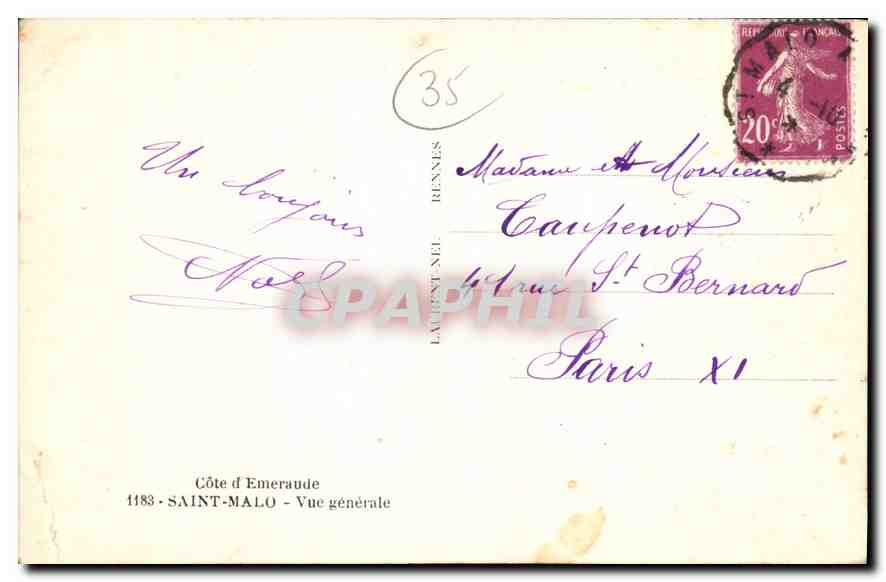 35
Un bonjour
Noël
LAURENT-NEL RENNES
RÉPUBLIQUE FRANÇAISE
20c
POSTES
ST MALO
4 -10
Madame et Monsieur
Caupenot
41 rue St Bernard
Paris XI
CPAPHIL
Côte d'Emeraude
1183 - SAINT-MALO - Vue générale